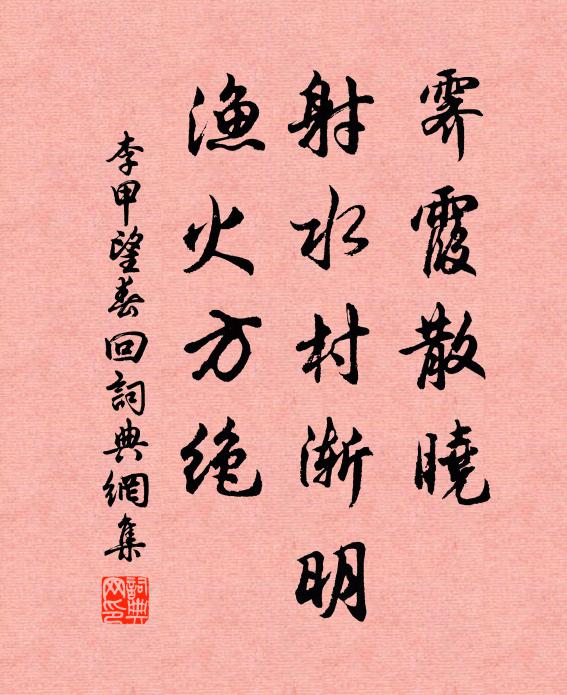 霽霞散曉
射水村漸明
漁火方絕
李甲望春回詞典網集
詞典网印